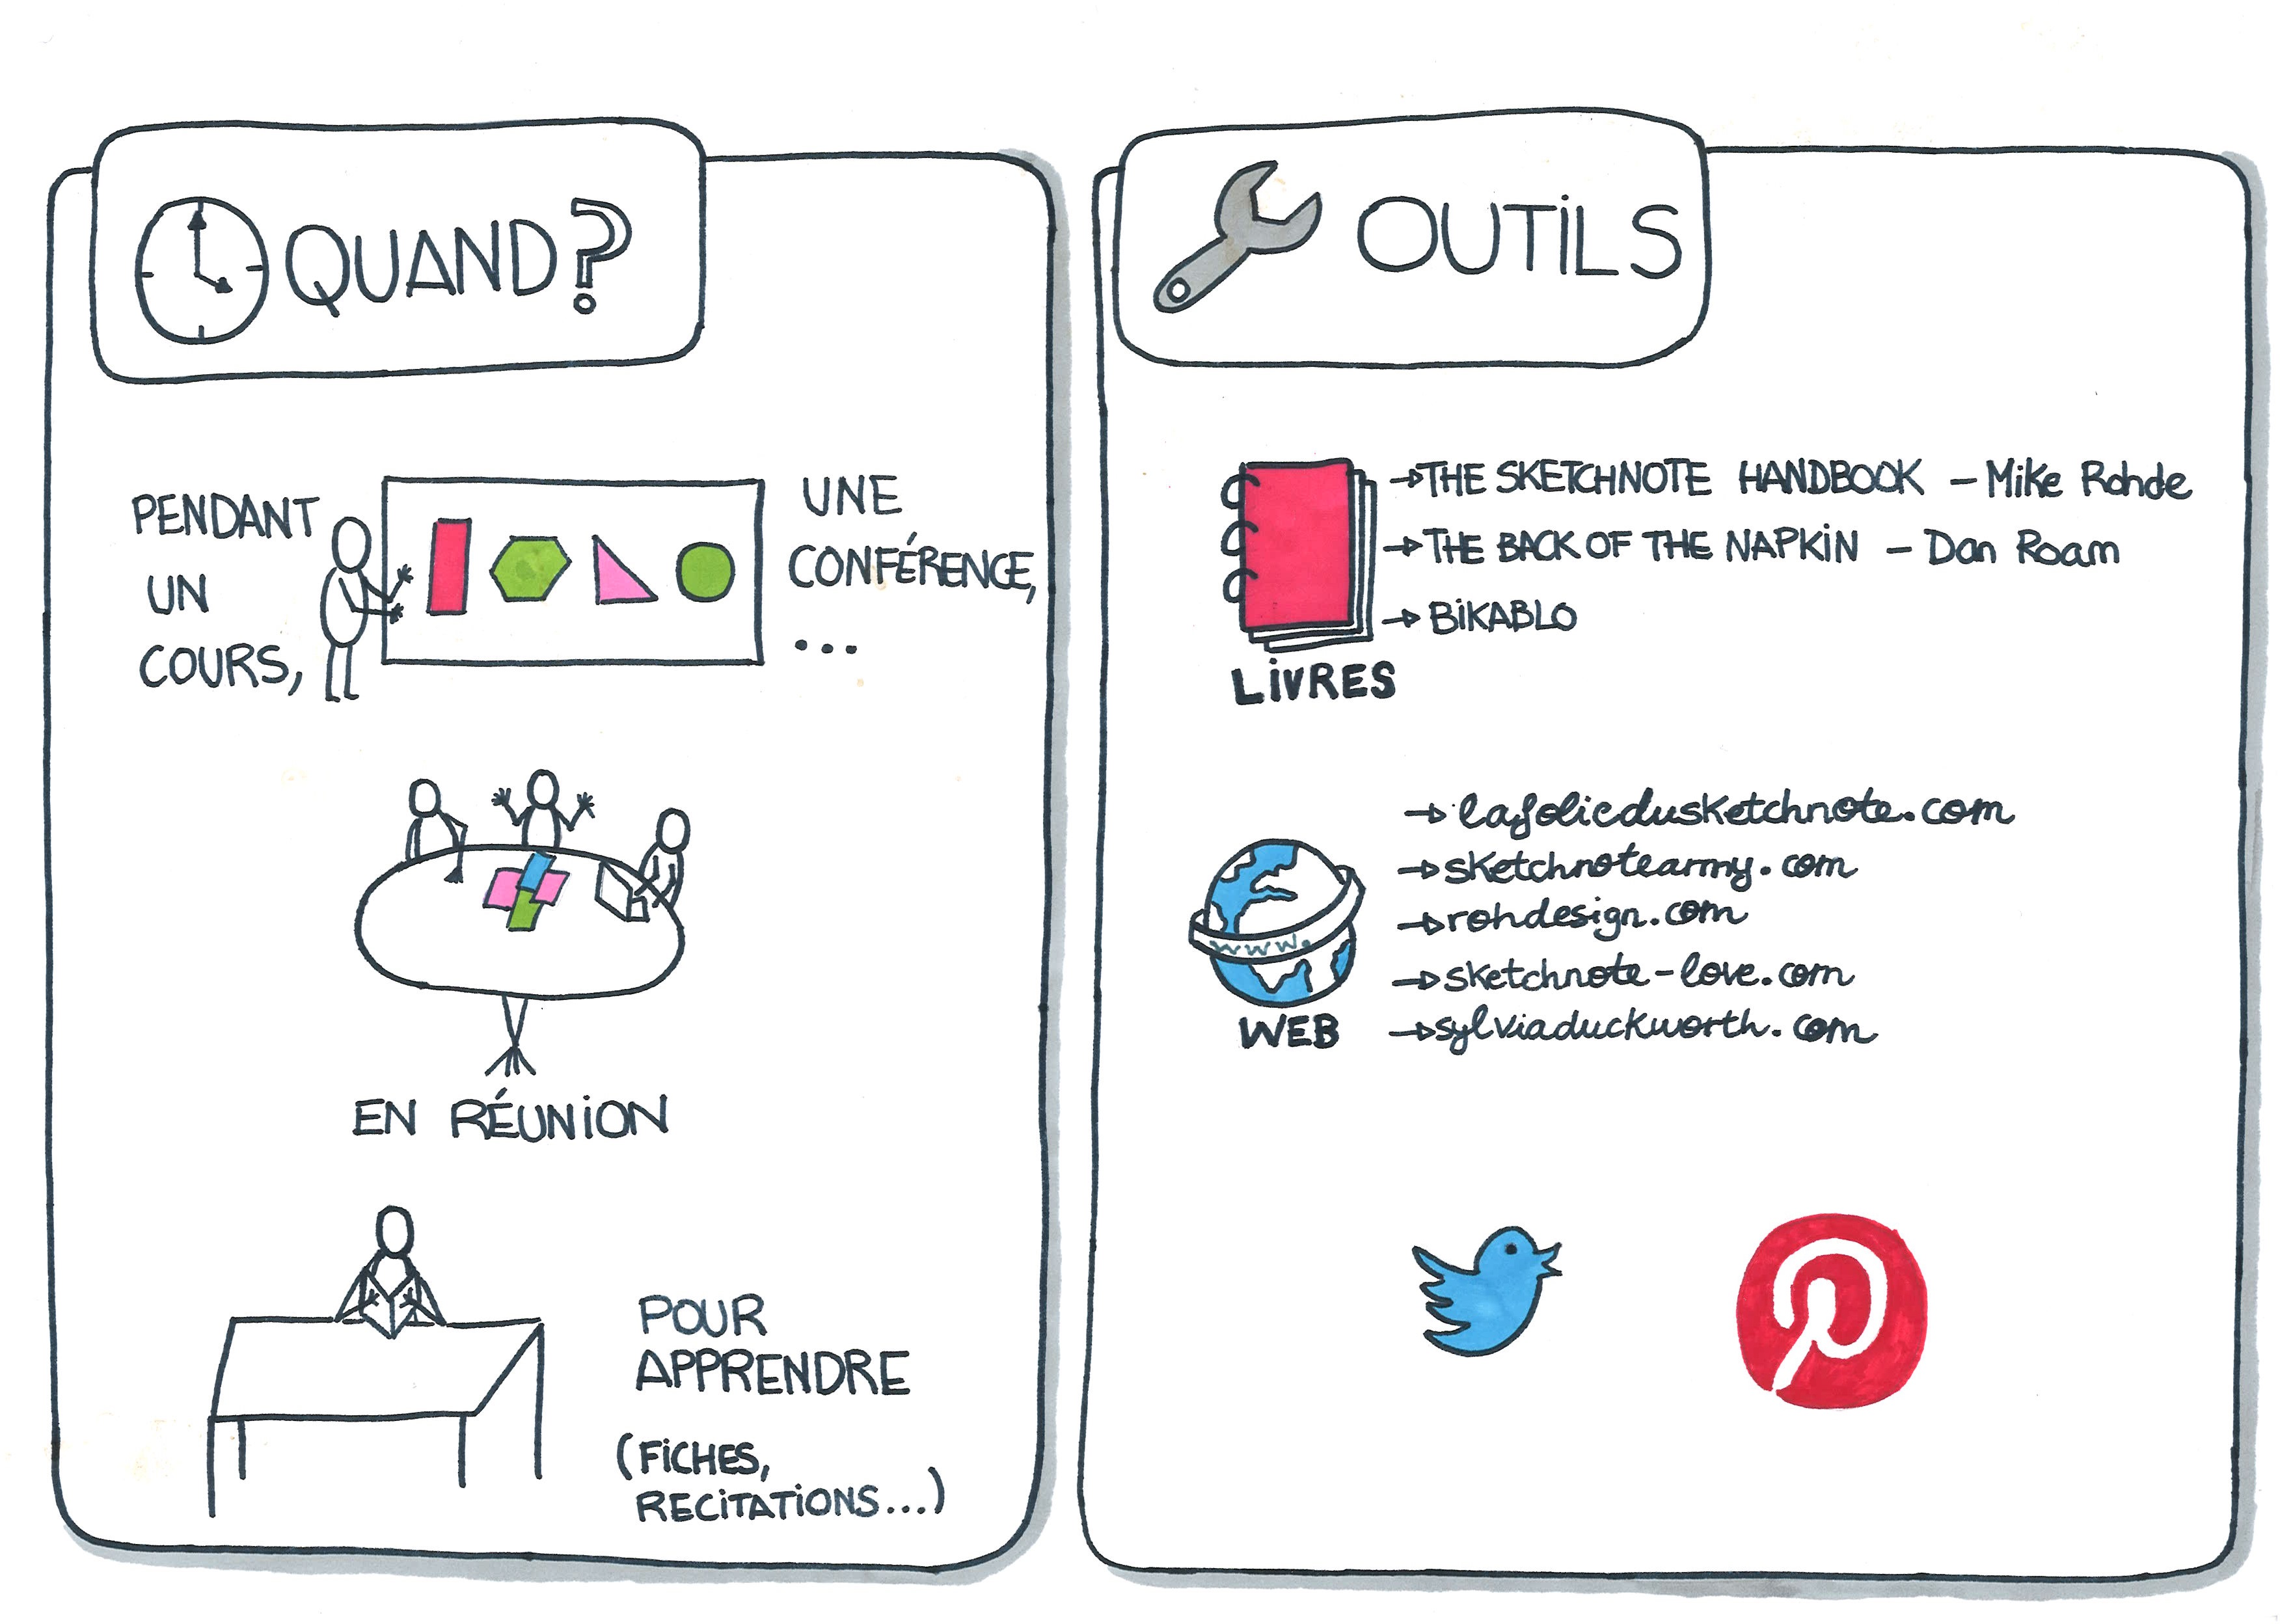 QUAND?
PENDANT
UN
COURS,
UNE
CONFÉRENCE,
...
EN RÉUNION
POUR
APPRENDRE
(FICHES,
RECITATIONS...)
OUTILS
→THE SKETCHNOTE HANDBOOK – Mike Rohde
→THE BACK OF THE NAPKIN – Dan Roam
→BIKABLO
LIVRES
→ lafoliedusketchnote.com
→sketchnotearmy.com
→rohdesign.com
→sketchnote-love.com
→sylviaduckworth.com
www.
WEB